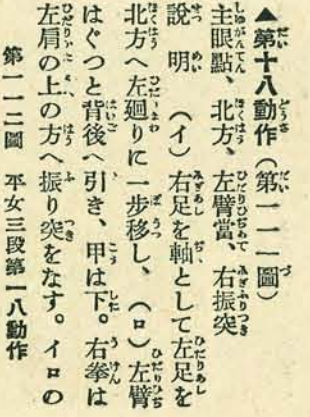 ▲第十八動作(第一一一圖)
主眼點、北方、左臂當、右振突
說明 (イ)右足を軸として左足を
北方へ左廻りに一步移し、(ロ)左臂
はぐつと背後へ引き、甲は下。右拳は
左肩の上の方へ振り突をなす。イロの
第一一二圖 平安三段第一八動作